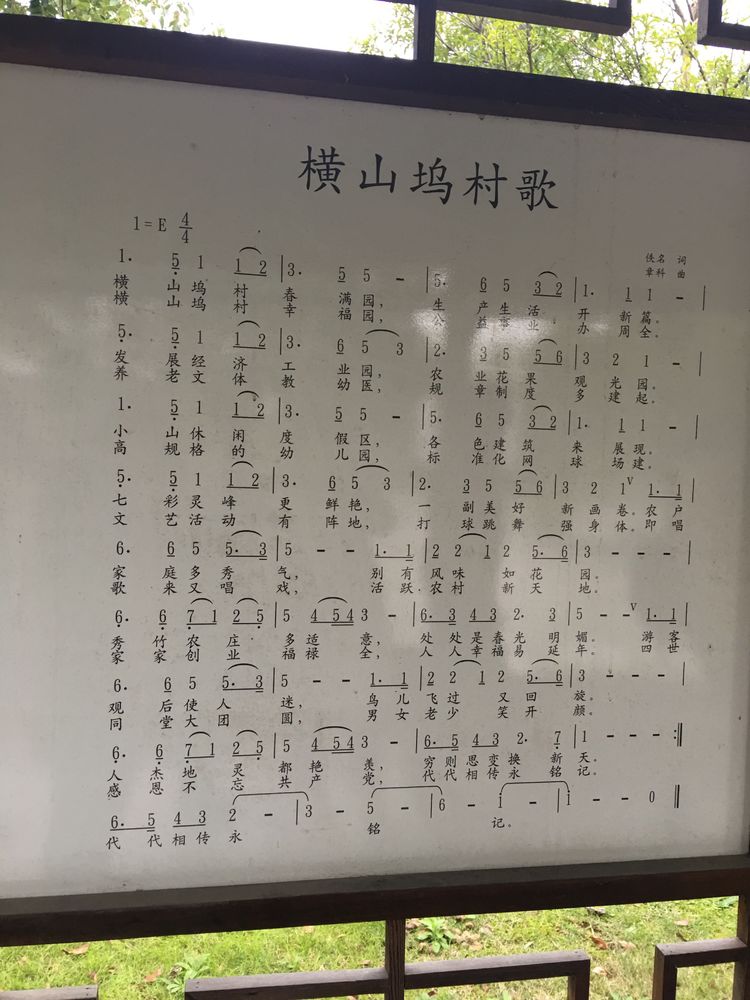 横山坞村歌
1=E 4/4
佚名 词
章科 曲
1. 5 1 1 2 | 3. 5 5 - | 5. 6 5 3 2 | 1. 1 1 - |
横 山 坞 村 春 满 园， 生 产 生 活 开 新 篇。
横 山 坞 村 幸 福 园， 公 益 事 业 办 周 全。
5. 5 1 1 2 | 3. 6 5 3 | 2. 3 5 5 6 | 3 2 1 - |
发 展 经 济 工 业 园， 农 业 花 果 观 光 园。
养 老 文 体 教 幼 医， 规 章 制 度 多 建 起。
1. 5 1 1 2 | 3. 5 5 - | 5. 6 5 3 2 | 1. 1 1 - |
小 山 休 闲 度 假 区， 各 色 建 筑 来 展 现。
高 规 格 的 幼 儿 园， 标 准 化 网 球 场 建。
5. 5 1 1 2 | 3. 6 5 3 | 2. 3 5 5 6 | 3 2 1 V 1. 1 |
七 彩 灵 峰 更 鲜 艳， 一 副 美 好 新 画 卷。 农 户
文 艺 活 动 有 阵 地， 打 球 跳 舞 强 身 体。 即 唱
6. 6 5 5. 3 | 5 - - 1. 1 | 2 2 1 2 5. 6 | 3 - - - |
家 庭 多 秀 气， 别 有 风 味 如 花 园。
歌 来 又 唱 戏， 活 跃 农 村 新 天 地。
6. 6 7 1 2 5 | 5 4 5 4 3 - | 6. 3 4 3 2. 3 | 5 - - V 1. 1 |
秀 竹 农 庄 多 适 意， 处 处 是 春 光 明 媚。 游 客
家 家 创 业 福 禄 全， 人 人 幸 福 易 延 年。 四 世
6. 6 5 5. 3 | 5 - - 1. 1 | 2 2 1 2 5. 6 | 3 - - - |
观 后 使 人 迷， 鸟 儿 飞 过 又 回 旋。
同 堂 大 团 圆， 男 女 老 少 笑 开 颜。
6. 6 7 1 2 5 | 5 4 5 4 3 - | 6. 5 4 3 2. 7 | 1 - - - :||
人 杰 地 灵 都 艳 羡， 穷 则 思 变 换 新 天。
感 恩 不 忘 共 产 党， 代 代 相 传 永 铭 记。
6. 5 4 3 2 - | 3 - 5 - | 6 - 1 - | 1 - - 0 ||
代 代 相 传 永 铭 记。